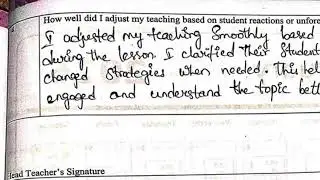 How well did I adjust my teaching based on student reactions or unfor
I adjusted my teaching smoothly based
during the lesson I clarified their student
changed strategies when needed. This hel
engaged and understand the topic bett
Head Teacher's Signature